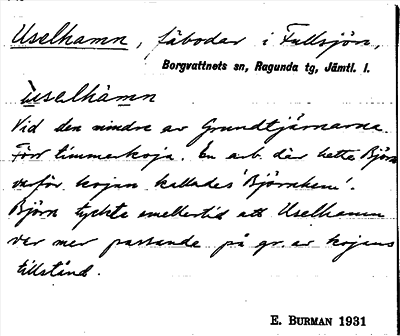 Uselhamn, fäbodar i Fullsjön,
Borgvattnets sn, Ragunda tg, Jämtl. l.
ùselhàmn
Vid den mindre av Grundtjärnarna.
Förr timmerkoja. En arb. där hette Björn
varför kojan kallades 'Björnhem'.
Björn tyckte emellertid att Uselhamn
var mer passande på gr. av kojans
tillstånd.
E. BURMAN 1931